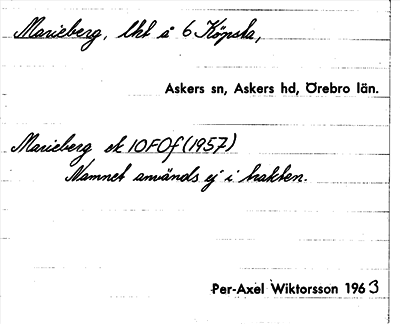 Marieberg, lht å 6 Köpsta,
Askers sn, Askers hd, Örebro län.
Marieberg ek 10F0f (1957)
Namnet används ej i trakten.
Per-Axel Wiktorsson 1963